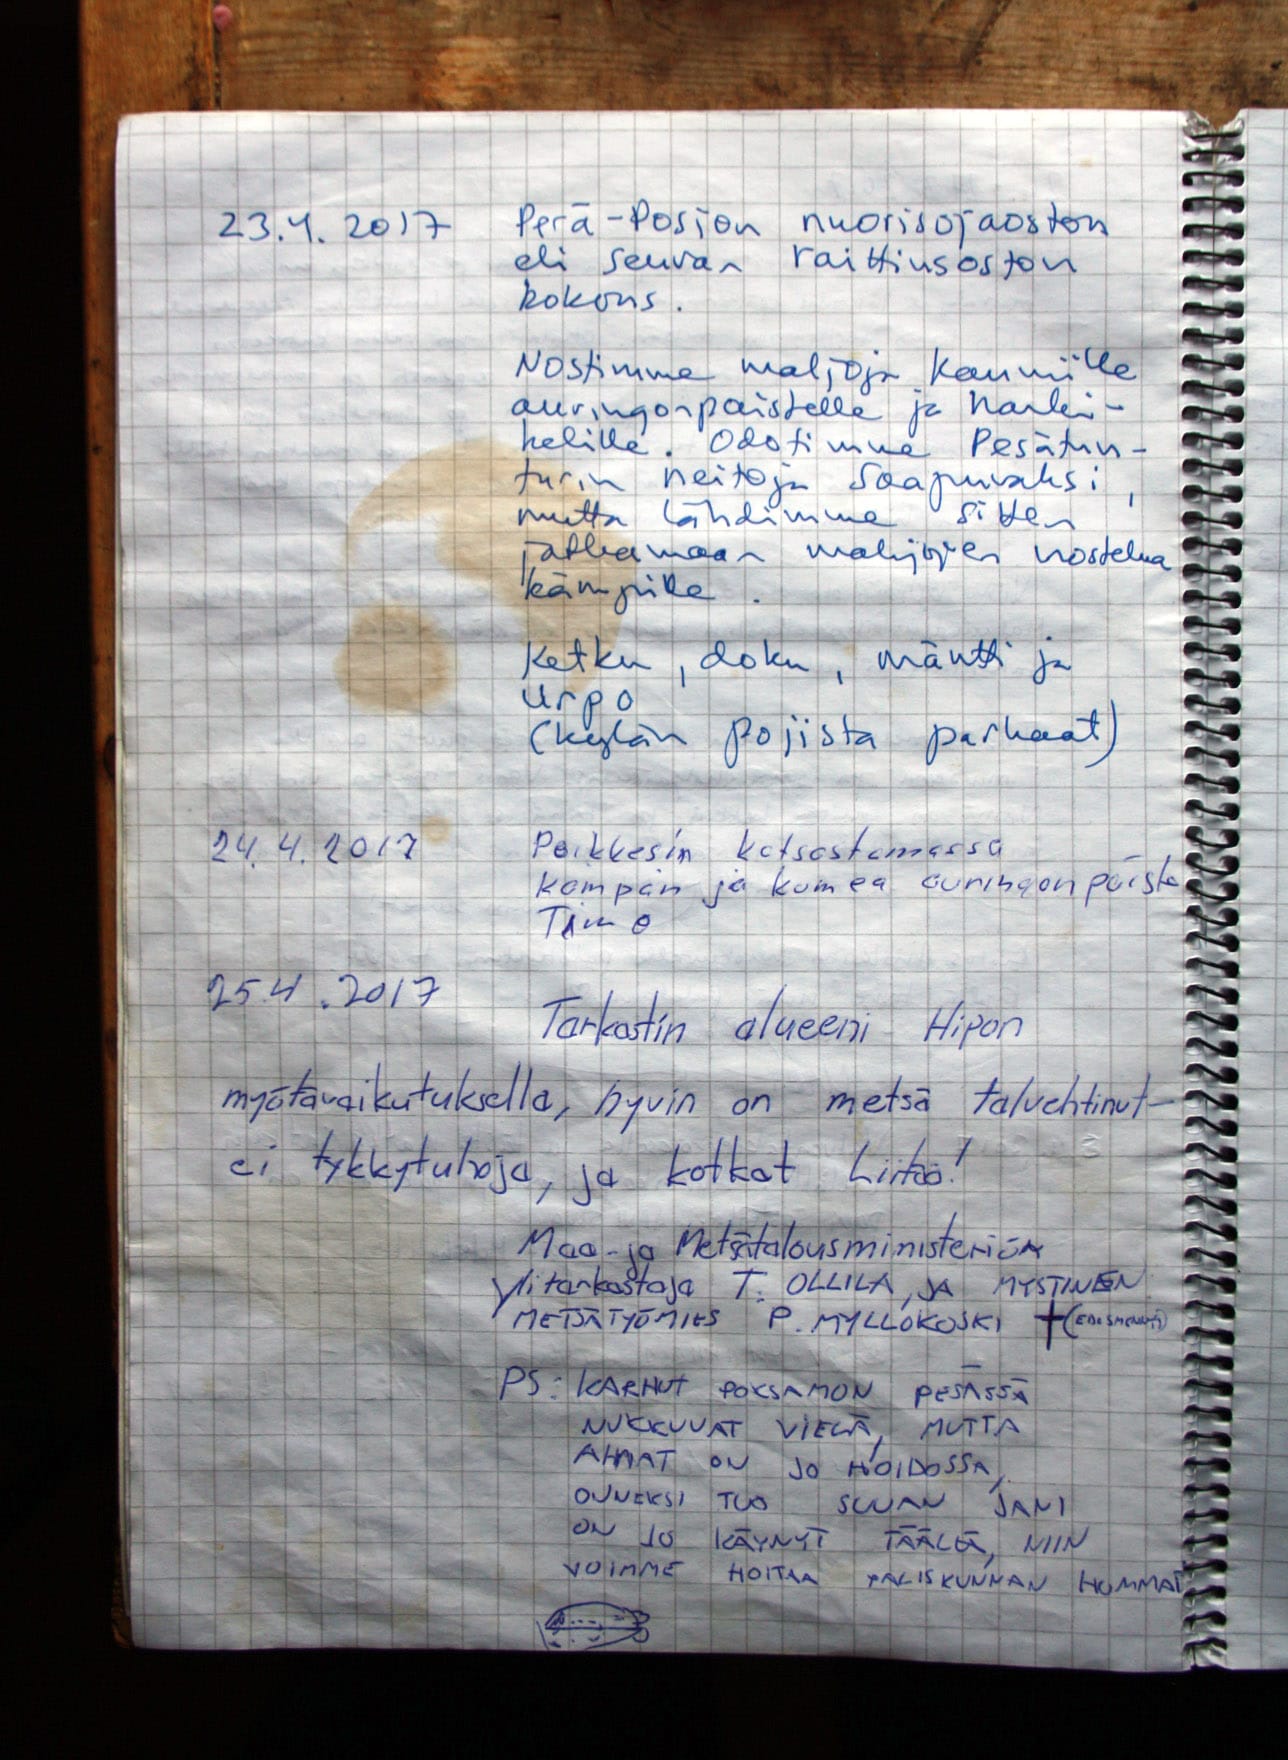 23.4.2017 Perä-Posion nuorisojaoston
eli seuran raittiusoston
kokous.
Nostimme maljoja kauniille
auringonpaisteelle ja hanki-
kelille. Odotimme Pesätun-
turin neitoja saapuvaksi,
mutta lähdimme sitten
jatkamaan maljojen nostelua
kämpille.
Ketku, doku, mäntti ja
Urpo
(kylän pojista parhaat)
24.4.2017 Poikkesin katsastamassa
kämpän ja komea auringonpaiste
Timo
25.4.2017
Tarkastin alueeni Hipon
myötävaikutuksella, hyvin on metsä talvehtinut-
ei tykkytuhoja, ja kotkat Liitää!
Maa- ja Metsätalousministeriön
ylitarkastaja T. OLLILA, JA MYSTINEN
METSÄTYÖMIES P. MYLLÖKOSKI
PS: KARHUT POKSAMON PESÄSSÄ
NUKKUVAT VIELÄ, MUTTA
AHMAT ON JO HOIDOSSA,
ONNEKSI TUO JANI
ON JO KÄYNYT TÄÄLLÄ, NIIN
VOIMME HOITAA PALISKUNNAN HOMMAT